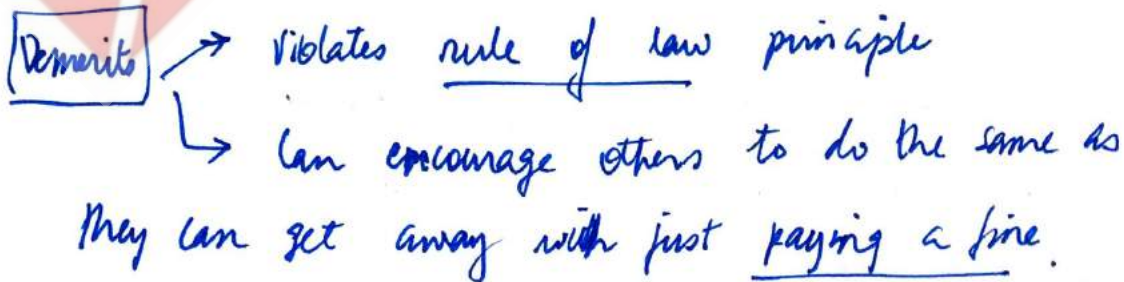 Demerits → violates rule of law principle
→ Can encourage others to do the same as
they can get away with just paying a fine.